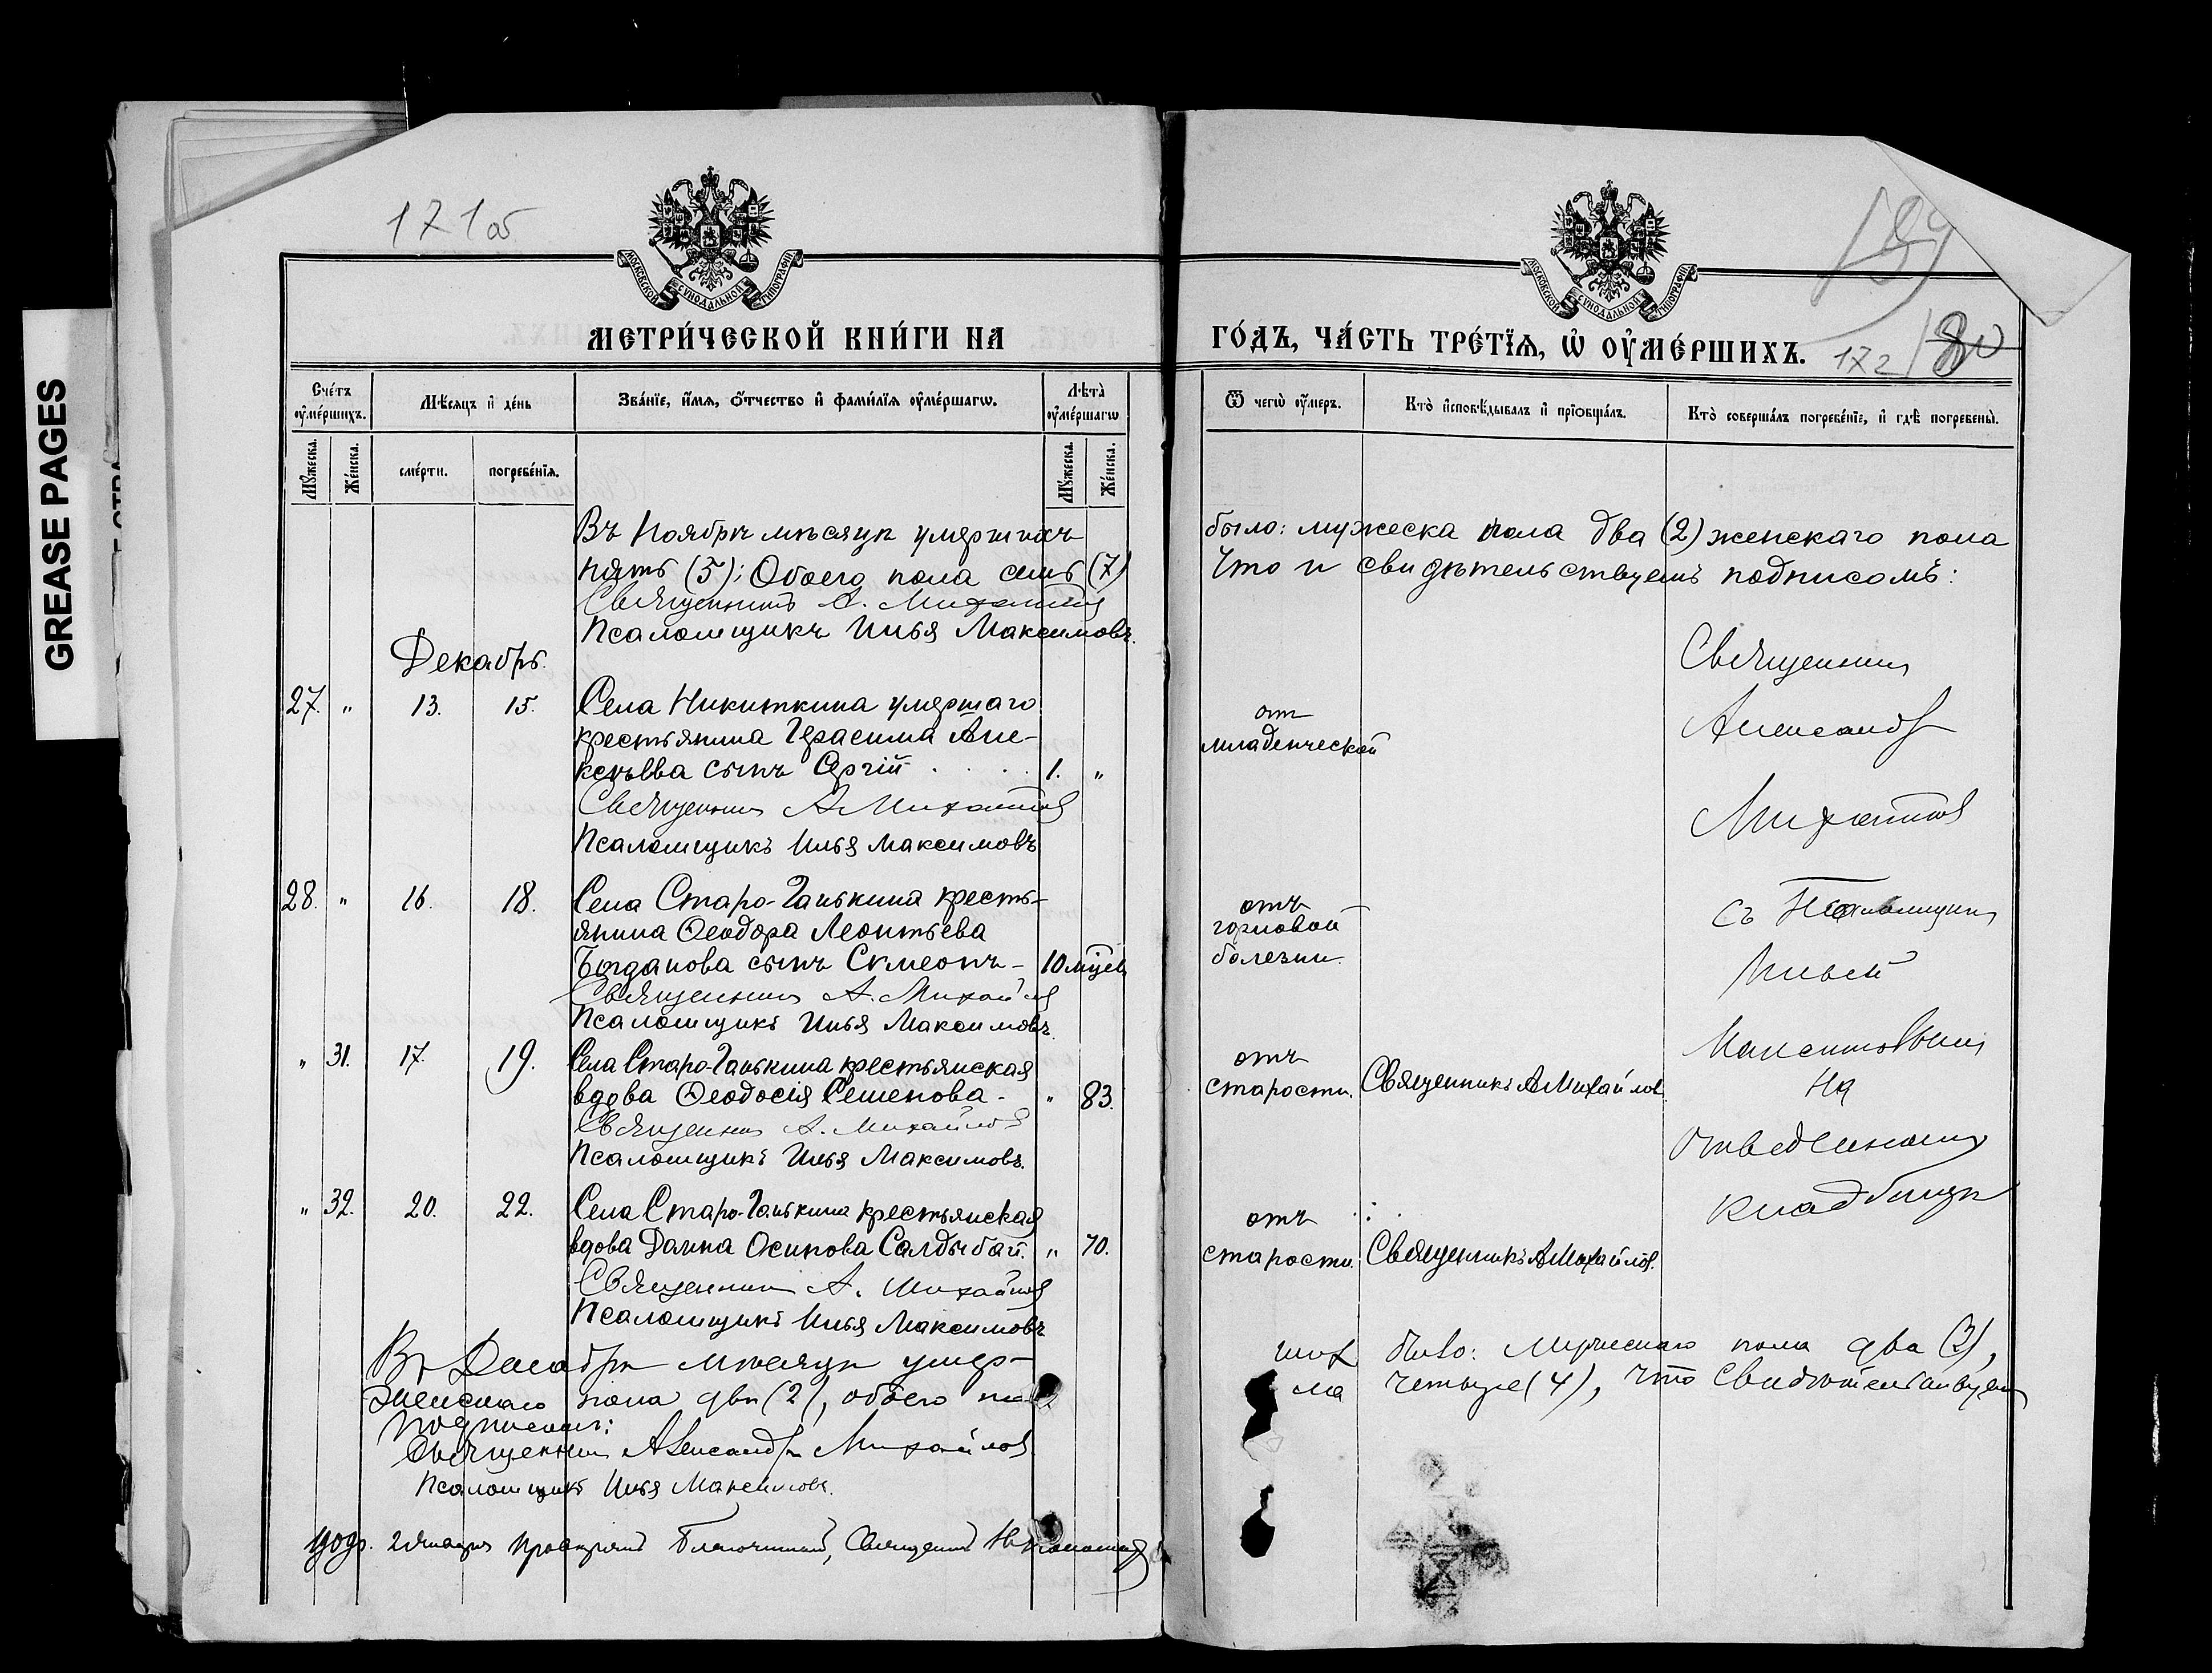 GREASE PAGES
171об
МОСКОВСКОЙ СѴНОДАЛЬНОЙ ТИПОГРАФІИ
МЕТРИ́ЧЕСКОЙ КНИ́ГИ НА
Сче́тъ ѹ҆ме́ршихъ.
Мѣсяцъ и҆ де́нь
Зва́нїе, и҆́мя, ѻ҆́тчество и҆ фами́лїя ѹ҆ме́ршагѡ.
Лѣта̀ ѹ҆ме́ршагѡ
Мꙋ́жеска. Же́нска. сме́рти. погребе́нїя. Мꙋ́жеска. Же́нска.
Въ Ноябрѣ мѣсяцѣ умершихъ
пять (5); Обоего пола семь (7)
Священникъ А. Михайловъ
Псаломщикъ Илья Максимовъ.
Декабрь.
27. " 13. 15. Села Никиткина умершаго
крестьянина Герасима Але-
ксѣева сынъ Сергій . . . . 1. "
Священникъ А Михайловъ
Псаломщикъ Илья Максимовъ
28. " 16. 18. Села Старо-Ганькина кресть-
янина Ѳеодора Леонтьева
Богданова сынъ Симеонъ - 10 мѣсец
Священникъ А. Михайловъ
Псаломщикъ Илья Максимовъ
" 31. 17. 19. Села Старо-Ганькина крестьянская
вдова Ѳеодосія Семенова - " 83.
Священникъ А. Михайловъ
Псаломщикъ Илья Максимовъ.
" 32. 20. 22. Села Старо-Ганькина крестьянская
вдова Дарка Осипова Салдыбай. " 70.
Священникъ А. Михайловъ
Псаломщикъ Илья Максимовъ
Въ Декабрѣ мѣсяцѣ умер-
женскаго пола двѣ (2), обоего по
подписомъ:
Священникъ Александръ Михайловъ
Псаломщикъ Илья Максимовъ.
года. 2 января Благочинный, Священникъ
172
180
МОСКОВСКОЙ СѴНОДАЛЬНОЙ ТИПОГРАФІИ
ГО́ДЪ, ЧА́СТЬ ТРЕ́ТЇѦ, Ѽ ОУ҆МЕ́РШИХЪ.
Ѿ чегѡ̀ ѹ҆́меръ.
Кто̀ и҆сповѣ́дывалъ и҆ прїѡбща́лъ.
Кто̀ соверша́лъ погребе́нїе, и҆ гдѣ̀ погребены̀.
было: мужеска пола два (2) женскаго пола
Что и свидѣтельствуемъ подписомъ:
Священникъ
от
младенческой
Александръ
Михайловъ
отъ
горловой
болезни.
съ Псаломщик
Ильей
Максимовымъ
отъ
старости. Священникъ А Михайловъ
На
отведенномъ
кладбищѣ
отъ
старости. Священникъ А Михайловъ.
шихъ было: мужескаго пола два (2),
ла четыре (4), что свидѣтельствуемъ